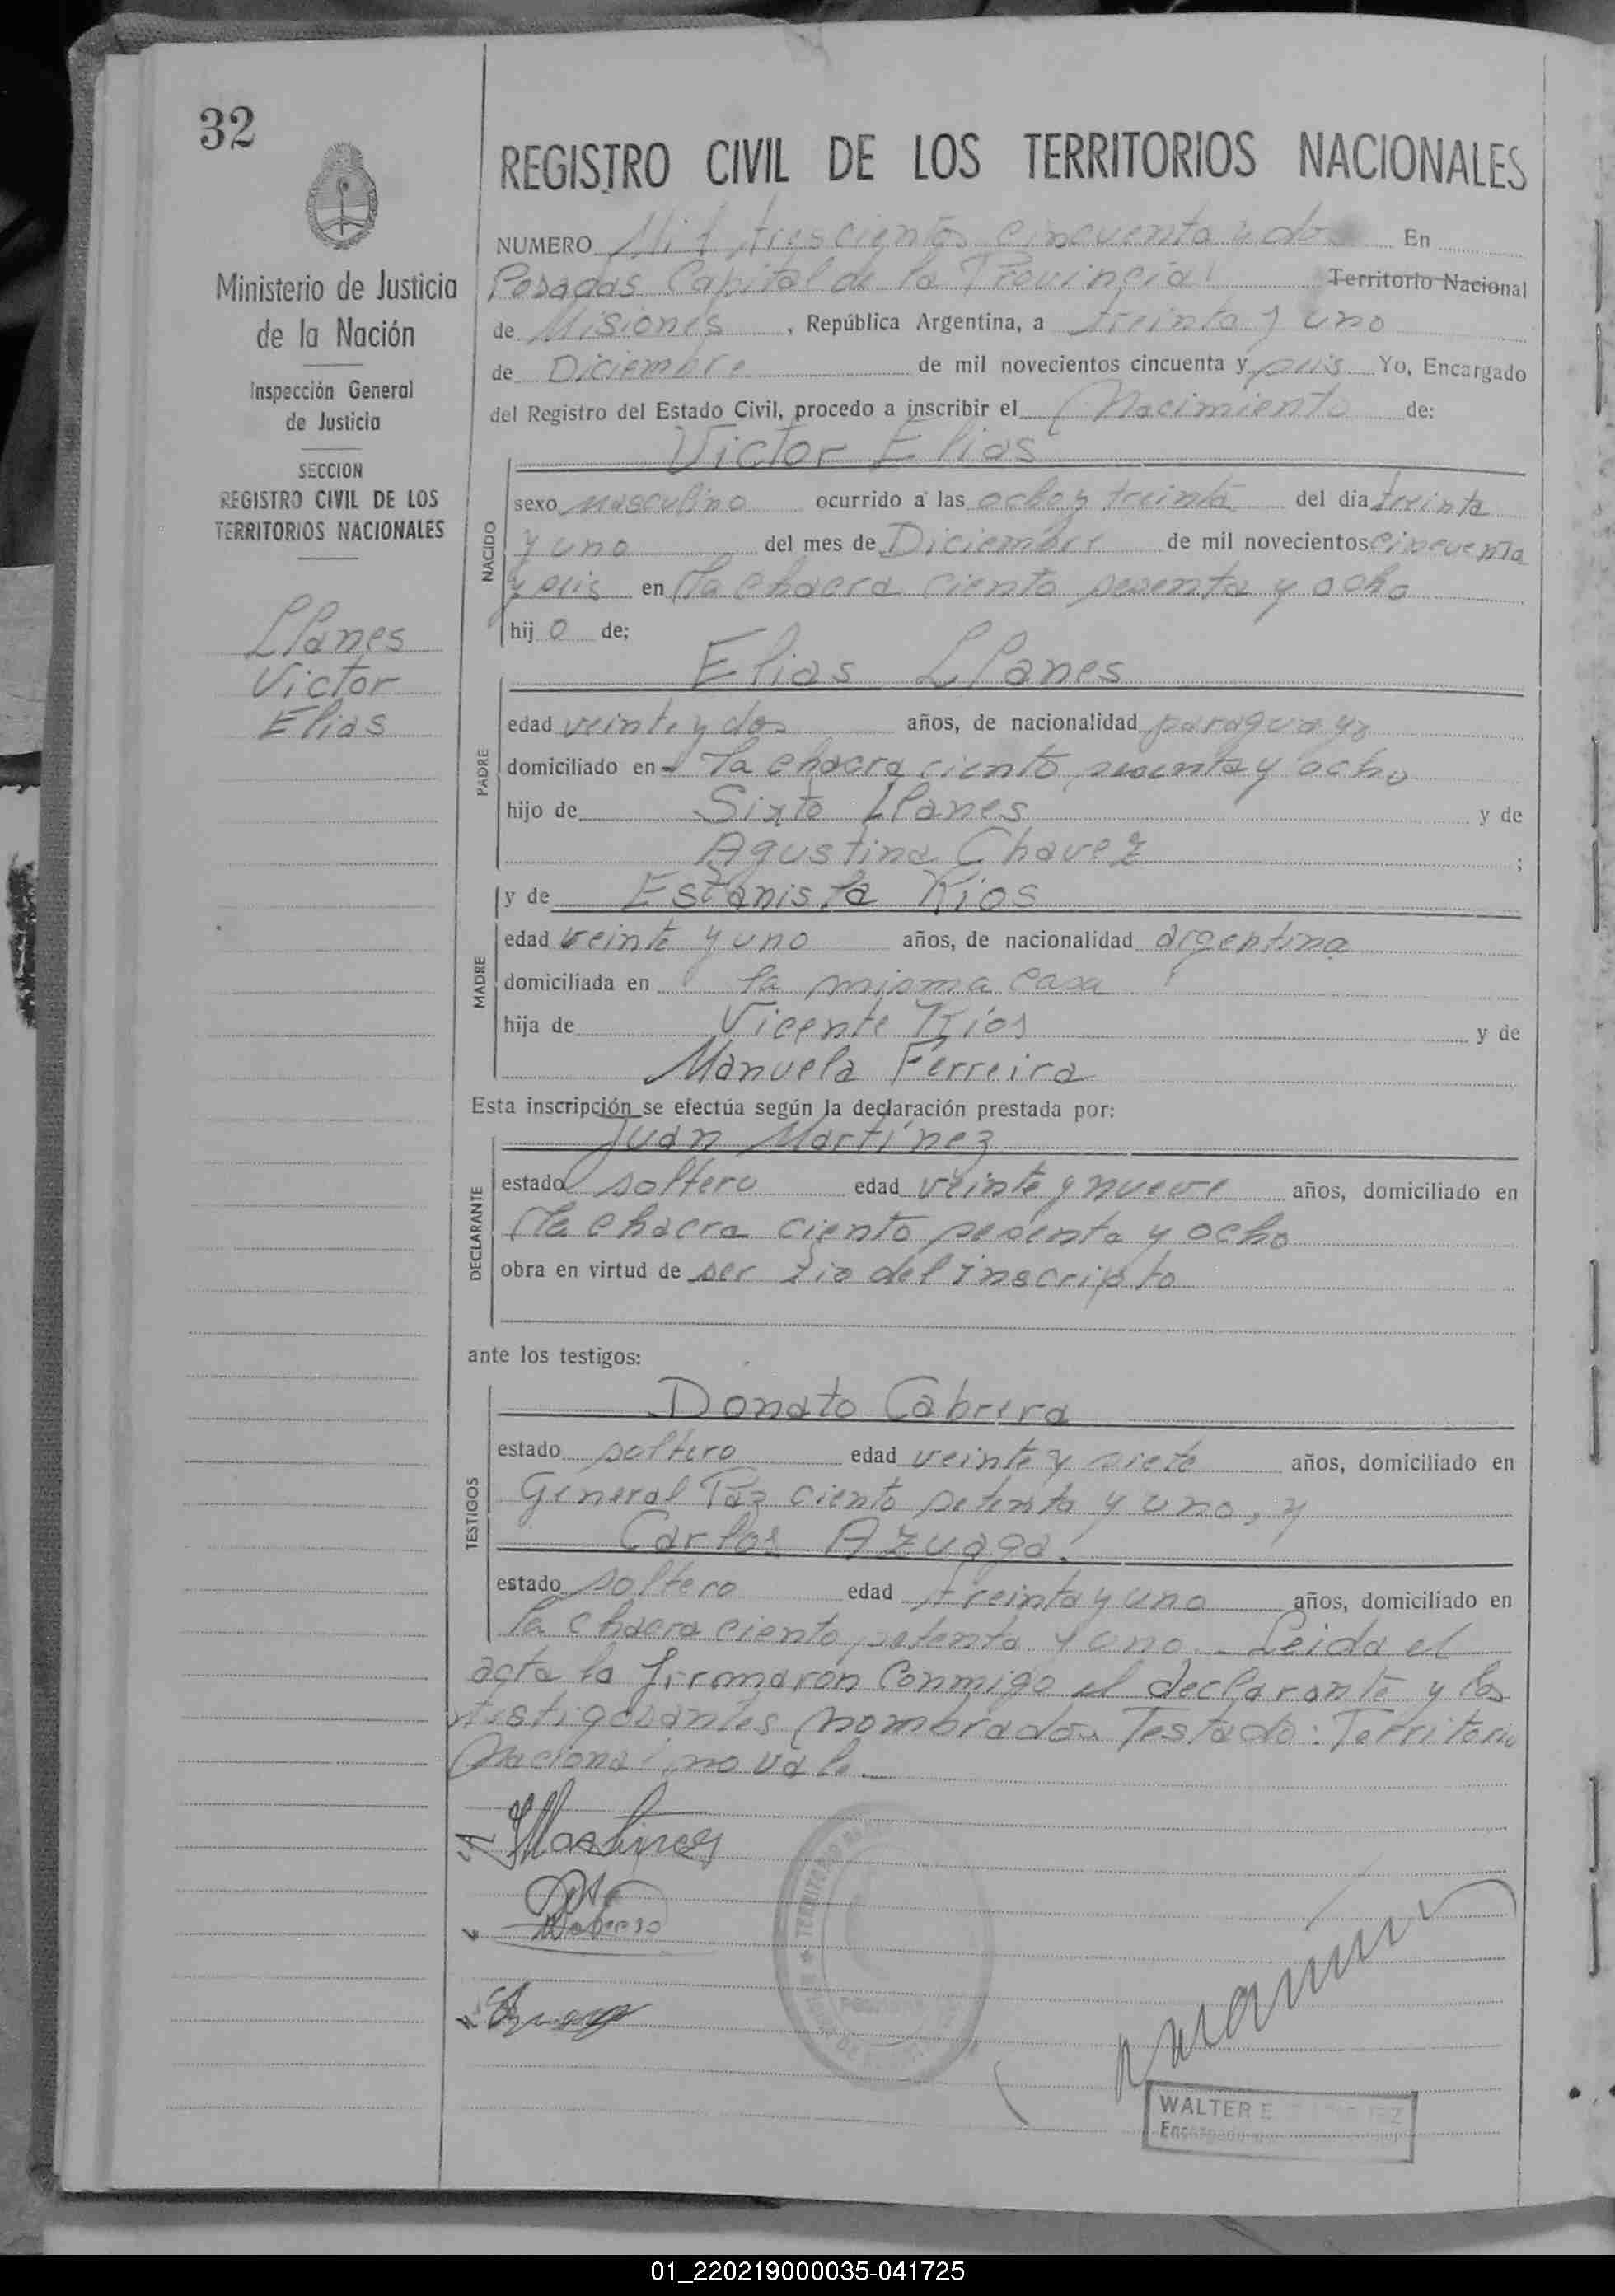 32
REGISTRO CIVIL DE LOS TERRITORIOS NACIONALES
Ministerio de Justicia
de la Nación
Inspección General
de Justicia
SECCION
REGISTRO CIVIL DE LOS
TERRITORIOS NACIONALES
Llanes
Victor
Elias
NUMERO Mil trescientos cincuenta y dos En
Posadas Capital de la Provincia Territorio Nacional
de Misiones, República Argentina, a treinta y uno
de Diciembre de mil novecientos cincuenta y seis Yo, Encargado
del Registro del Estado Civil, procedo a inscribir el Nacimiento de:
Victor Elias
NACIDO
sexo masculino ocurrido a las ocho y treinta del día treinta
y uno del mes de Diciembre de mil novecientos cincuenta
y seis en la chacra ciento sesenta y ocho
hijo de:
Elias Llanes
PADRE
edad veinte y dos años, de nacionalidad paraguayo
domiciliado en la chacra ciento sesenta y ocho
hijo de Sixto Llanes y de
Agustina Chavez ;
y de Estanisla Rios
MADRE
edad veinte y uno años, de nacionalidad argentina
domiciliada en la misma casa
hija de Vicente Ríos y de
Manuela Ferreira
Esta inscripción se efectúa según la declaración prestada por:
Juan Martínez
DECLARANTE
estado soltero edad veinte y nueve años, domiciliado en
la chacra ciento sesenta y ocho
obra en virtud de ser tio del inscripto
ante los testigos:
Donato Cabrera
TESTIGOS
estado soltero edad veinte y siete años, domiciliado en
General Paz ciento setenta y uno, y
Carlos Azuaga.
estado soltero edad treinta y uno años, domiciliado en
la chacra ciento setenta y uno. Leida el
acta la firmaron conmigo el declarante y los
testigos antes nombrados Testado: Territorio
Nacional no vale.
JMartinez
WALTER E
Encargado
01_220219000035-041725